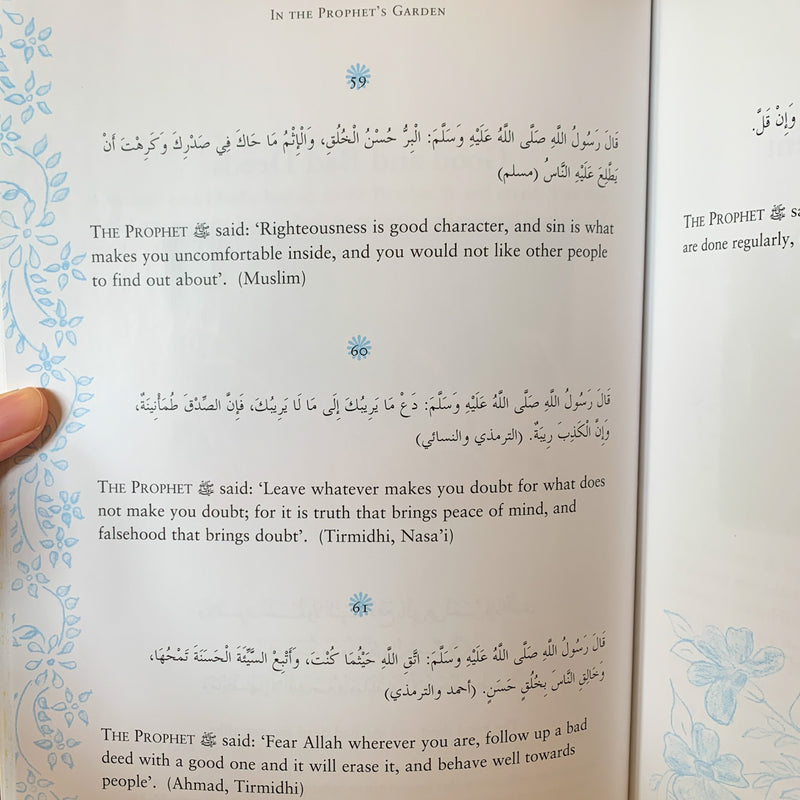 IN THE PROPHET'S GARDEN
59
قَالَ رَسُولُ اللَّهِ صَلَّى اللَّهُ عَلَيْهِ وَسَلَّمَ: الْبِرُّ حُسْنُ الْخُلُقِ، وَالْإِثْمُ مَا حَاكَ فِي صَدْرِكَ وَكَرِهْتَ أَنْ
يَطَّلِعَ عَلَيْهِ النَّاسُ (مسلم)
THE PROPHET ﷺ said: ‘Righteousness is good character, and sin is what
makes you uncomfortable inside, and you would not like other people
to find out about’. (Muslim)
60
قَالَ رَسُولُ اللَّهِ صَلَّى اللَّهُ عَلَيْهِ وَسَلَّمَ: دَعْ مَا يَرِيبُكَ إِلَى مَا لَا يَرِيبُكَ، فَإِنَّ الصِّدْقَ طُمَأْنِينَةٌ،
وَإِنَّ الْكَذِبَ رِيبَةٌ. (الترمذي والنسائي)
THE PROPHET ﷺ said: ‘Leave whatever makes you doubt for what does
not make you doubt; for it is truth that brings peace of mind, and
falsehood that brings doubt’. (Tirmidhi, Nasa’i)
61
قَالَ رَسُولُ اللَّهِ صَلَّى اللَّهُ عَلَيْهِ وَسَلَّمَ: اتَّقِ اللَّهِ حَيْثُمَا كُنْتَ، وَأَتْبِعْ السَّيِّئَةَ الْحَسَنَةَ تَمْحُهَا،
وَخَالِقِ النَّاسَ بِخُلُقٍ حَسَنٍ. (أحمد والترمذي)
THE PROPHET ﷺ said: ‘Fear Allah wherever you are, follow up a bad
deed with a good one and it will erase it, and behave well towards
people’. (Ahmad, Tirmidhi)
وَإِنْ قَلَّ.
THE PROPHET ﷺ
are done regularly,